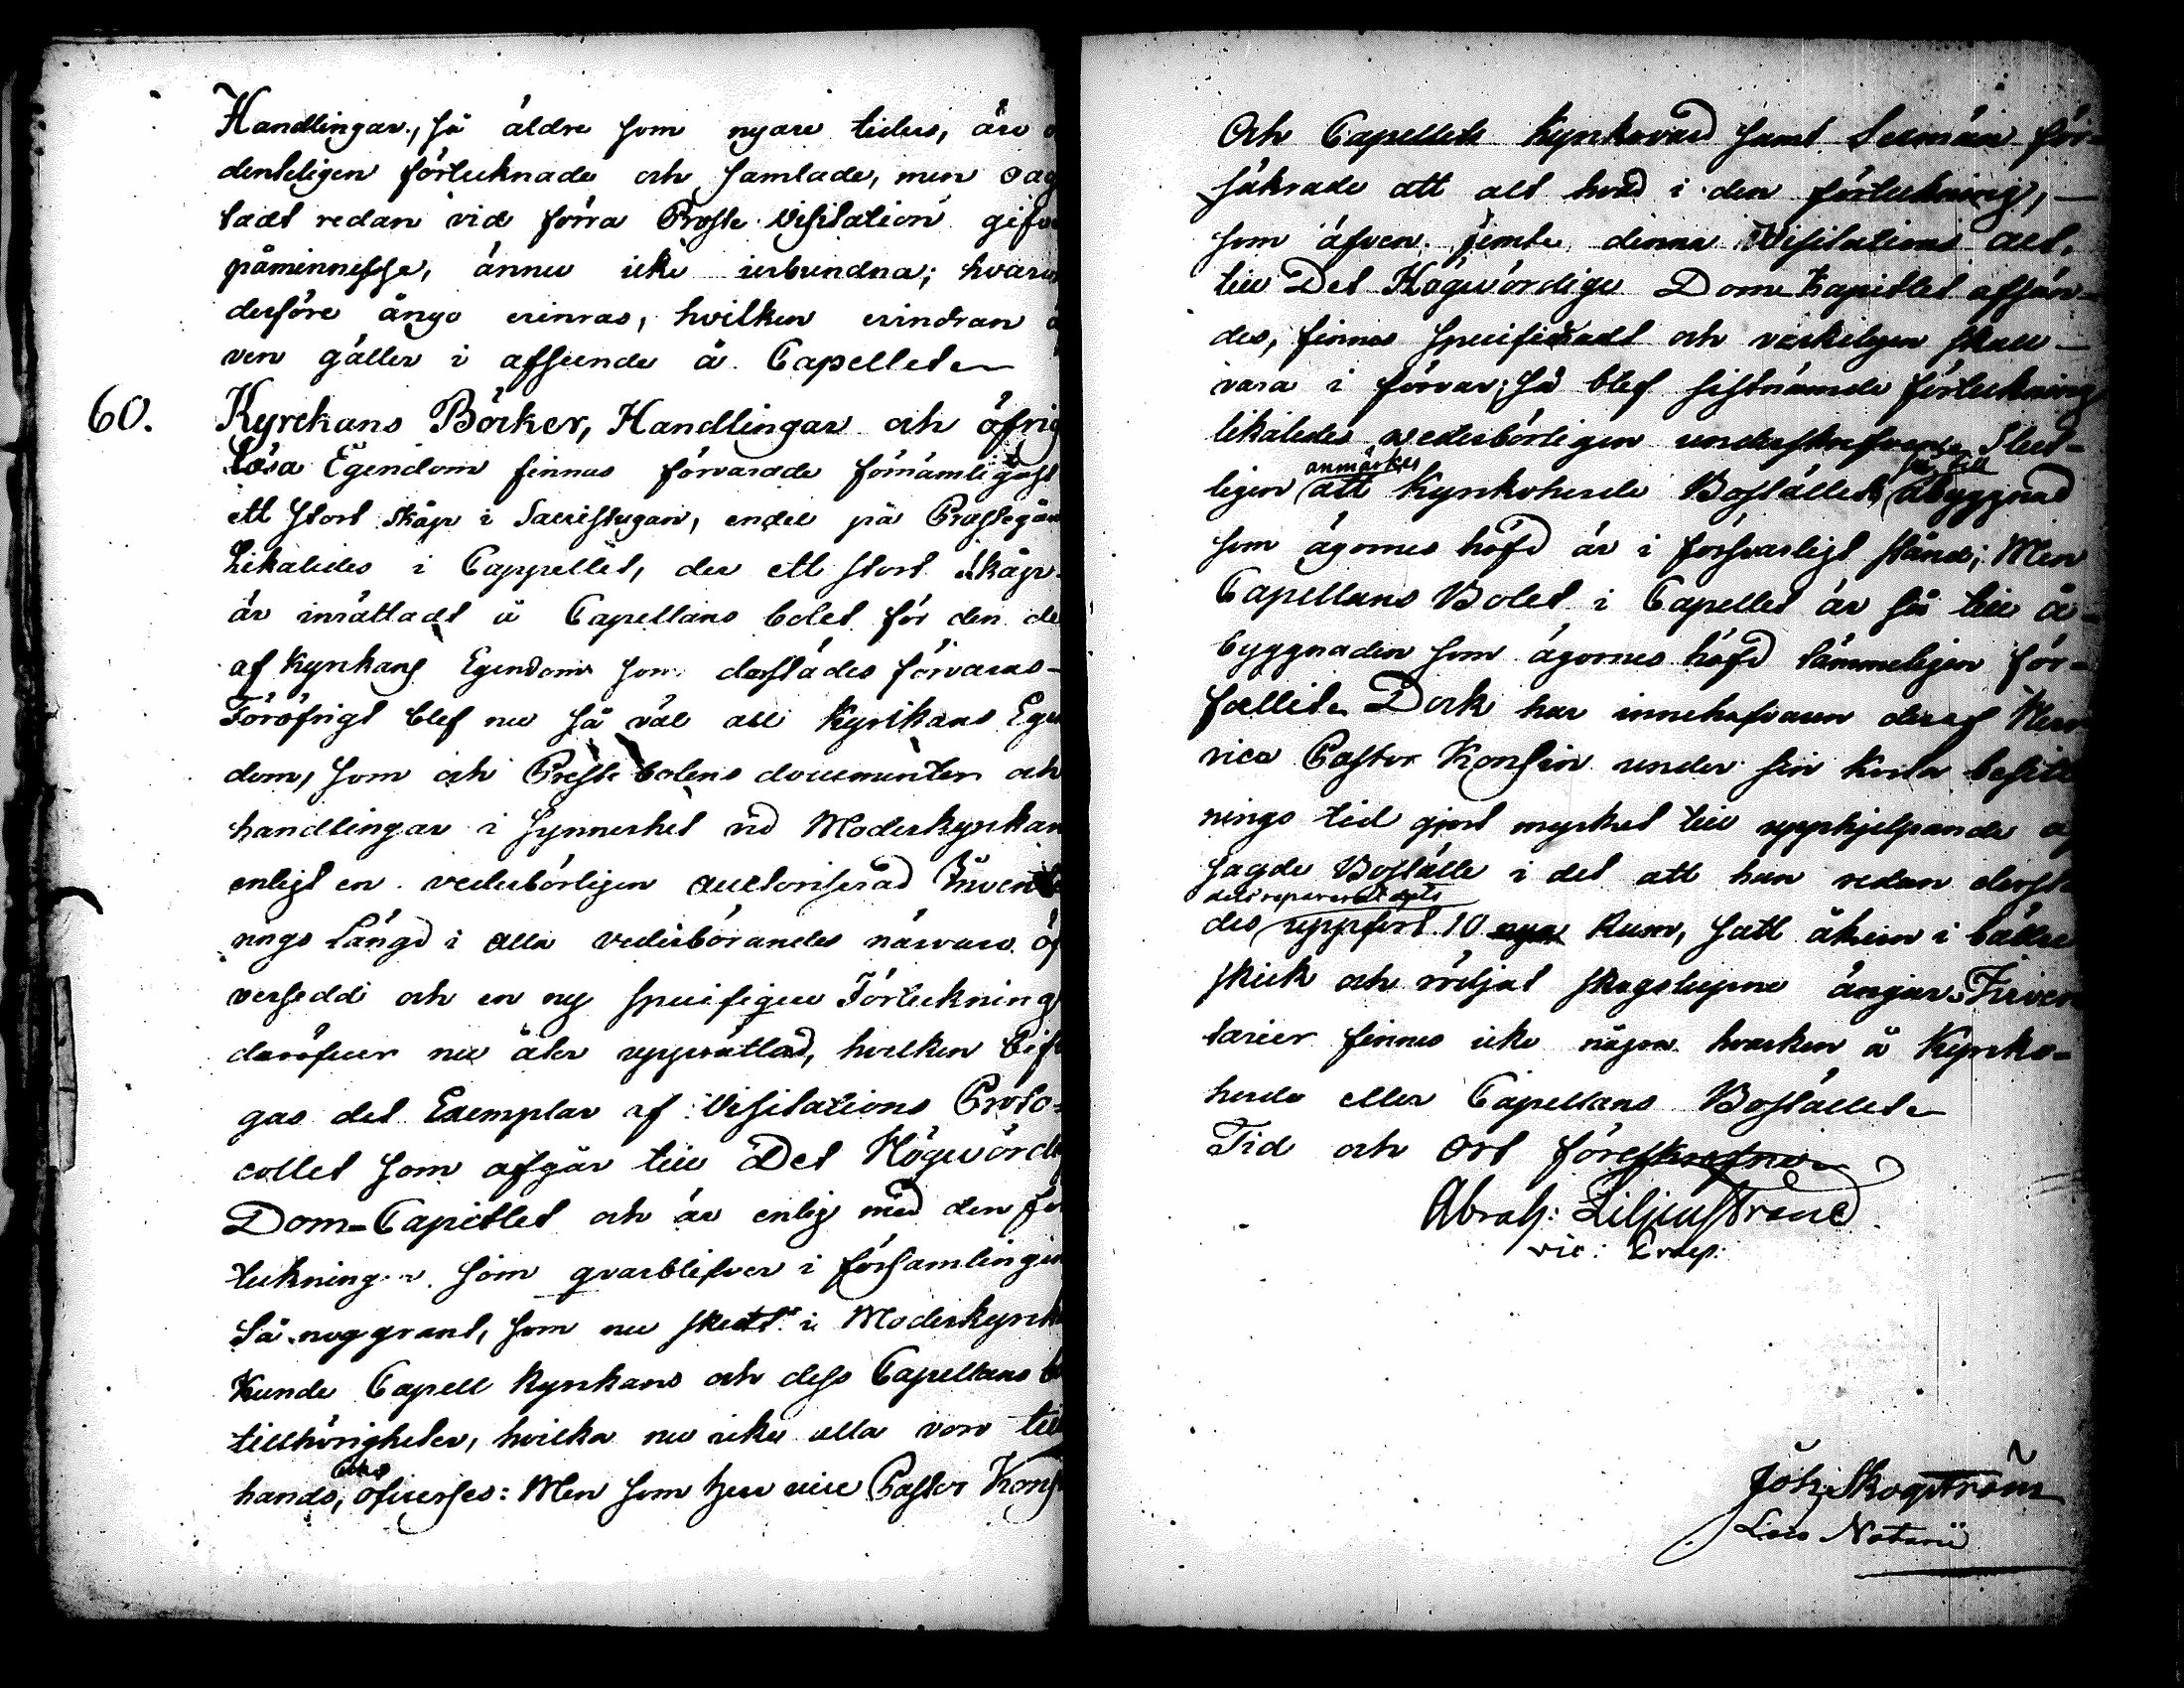 Handlingar, så äldre som nyare tiders, äro o
denteligen förteknade och samlade, men oag
tadt redan vid förra Probste Visitation gifv
påminnelse, ännu icke inbundna; hvarom
derföre ånyo erinras, hvilken erindran ä
ven gäller i afseende å Capellet
60. Kyrckans Böcker, Handlingar och öfrig
Lösa Egendom finnes förvarade förnämligast
ett stort skåp i Sacristugan, endel på Prästegår
Likaledes i Cappellet, der ett stort skåp
är inrättadt å Capellans bolet för den de
af Kyrkans Egendom som derstädes förvaras
Föröfrigt blef nu så väl all Kyrkans Egen
dom, som och Preste bolens documenter och
handlingar i synnerhet vid Moderkyrkan
enligt en vederbörligen auctoriserad Invente
rings Längd i alla vederbörandes närvaro öf
versedd och en ny specifique Förtekning
deröfver nu åter upprättad, hvilken bifo
gas det Exemplar af Visitations Proto-
collet som afgår till Det Högwördi
Dom-Capitlet och är enlig med den för
tekning som qvarblifver i församlingen
Så noggrant, som nu skedt i Moderkyrck
kunde Capell kyrkans och dess Capellans b
tillhörigheter, hvilka nu icke alla voro till
hands, öfverses: Men som Herr vice Pastor Kons
Och Capellets Kyrkovärd samt Sexmän för-
säkrade att alt hvad i den förtekning,
som äfven jemte denna Visitations act,
till Det Högwördige Dom-Kapitlet afsän-
des, finnes specificeradt och verkeligen skall
vara i förvar; så blef sistnämde förtekning
likaledes vederbörligen underskrefven. Slut-
anmärkes så till
ligen att Kyrkoherde Boställets åbyggnad
som ägornes höfd är i försvarligt stånd; Men
Capellans Bolet i Capellet är så till å-
byggnaden som ägornes häfd tämmeligen för-
fallit. Dock har innehafvaren deraf Herr
vice Pastor Konsin under sin korta besitt
nings tid gjort myrket till upphjelpande af
sagde Boställe i det att han redan derstä
dels reparerat dels
des uppfört 10 nya Rum, satt åkern i bättre
skick och rödjat skogslupne ängar. Inven
tarier finnes icke någre hvarken å Kyrko-
herde eller Capellans Bostället
Tid och Ort föreskrefne
Abrah: Liljenstrand
vic: Praep:
Joh: Skogström
Loco Notarii